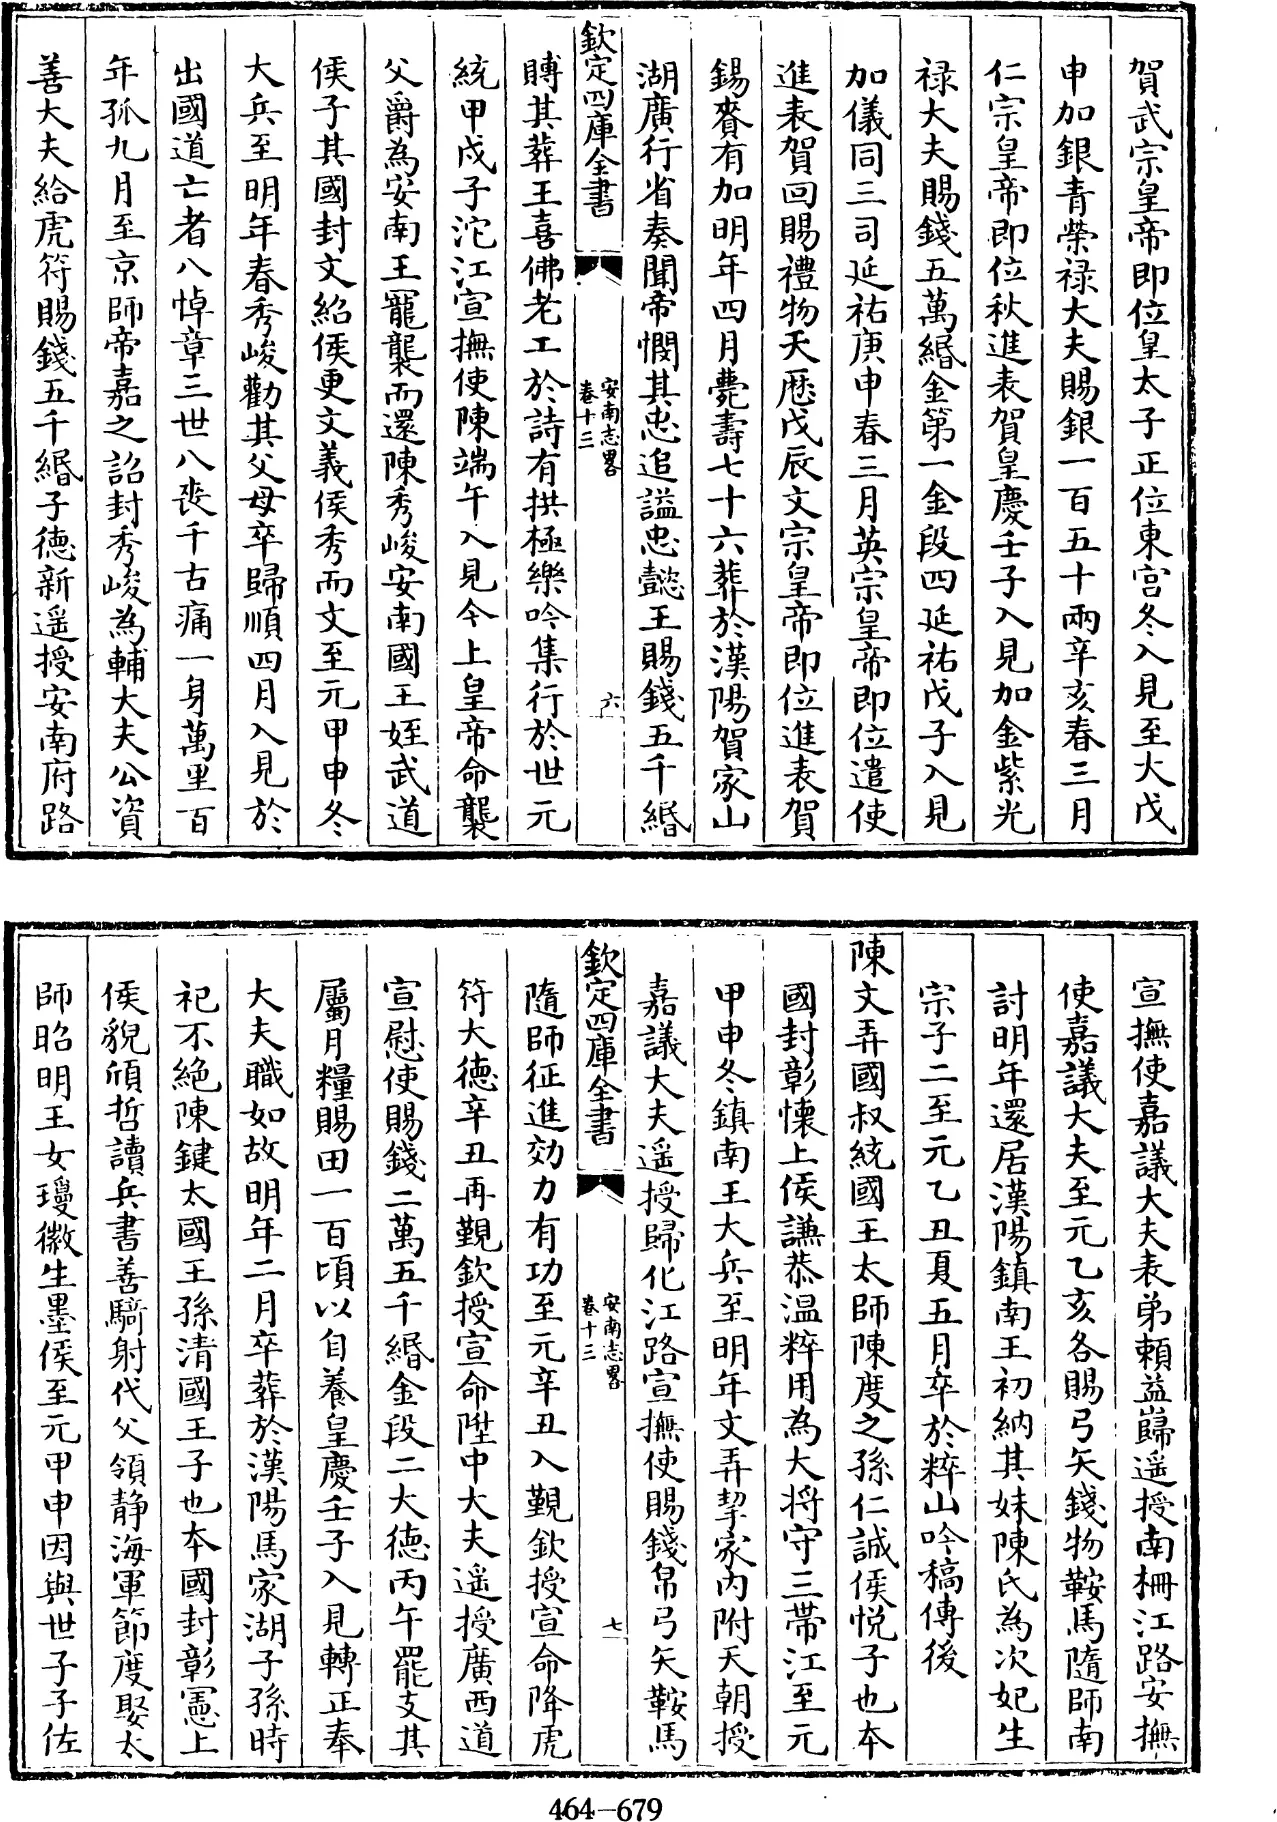 賀武宗皇帝即位皇太子正位東宫冬入見至大戊
申加銀青榮禄大夫賜銀一百五十兩辛亥春三月
仁宗皇帝即位秋進表賀皇慶壬子入見加金紫光
禄大夫賜錢五萬緡金第一金段四延祐戊子入見
加儀同三司延祐庚申春三月英宗皇帝即位遣使
進表賀回賜禮物天厯戊辰文宗皇帝即位進表賀
錫賚有加明年四月薨壽七十六葬於漢陽賀家山
湖廣行省奏聞帝憫其忠追謚忠懿王賜錢五千緡
欽定四庫全書
安南志畧
卷十三
六
賻其葬王喜佛老工於詩有拱極樂吟集行於世元
統甲戍子沱江宣撫使陳端午入見今上皇帝命襲
父爵為安南王寵襲而還陳秀峻安南國王姪武道
侯子其國封文紹侯更文義侯秀而文至元甲申冬
大兵至明年春秀峻勸其父母卒歸順四月入見於
出國道亡者八悼章三世八喪千古痛一身萬里百
年孤九月至京師帝嘉之詔封秀峻為輔大夫公資
善大夫給虎符賜錢五千緡子德新遥授安南府路
宣撫使嘉議大夫表弟賴益歸遥授南柵江路安撫
使嘉議大夫至元乙亥各賜弓矢錢物鞍馬隨師南
討明年還居漢陽鎮南王初納其妹陳氏為次妃生
宗子二至元乙丑夏五月卒於粹山吟稿傳後
陳文弄國叔統國王太師陳度之孫仁誠侯悦子也本
國封彰懷上侯謙恭温粹用為大將守三帶江至元
甲申冬鎮南王大兵至明年文弄挈家内附天朝授
嘉議大夫遥授歸化江路宣撫使賜錢帛弓矢鞍馬
欽定四庫全書
安南志畧
卷十三
七
隨師征進効力有功至元辛丑入覲欽授宣命降虎
符大德辛丑再覲欽授宣命陞中大夫遥授廣西道
宣慰使賜錢二萬五千緡金段二大德丙午罷支其
屬月糧賜田一百頃以自養皇慶壬子入見轉正奉
大夫職如故明年二月卒葬於漢陽馬家湖子孫時
祀不絶陳鍵太國王孫清國王子也本國封彰憲上
侯貌頎哲讀兵書善騎射代父領静海軍節度娶太
師昭明王女瓊徽生墨侯至元甲申因與世子子佐
464-679